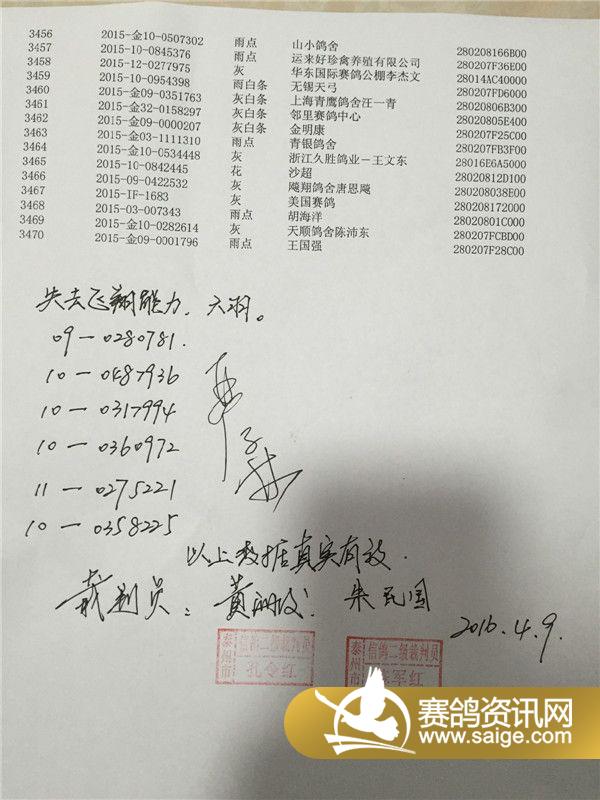 3456 2015-金10-0507302 雨点 山小鸽舍 280208166B00
3457 2015-10-0845376 雨点 运来好珍禽养殖有限公司 280207F36E00
3458 2015-12-0277975 灰 华东国际赛鸽公棚李杰文 28014AC40000
3459 2015-10-0954398 雨白条 无锡天弓 280207FD6000
3460 2015-金09-0351763 灰白条 上海青鹰鸽舍汪一青 28020806B300
3461 2015-金32-0158297 灰白条 邻里赛鸽中心 28020805E400
3462 2015-金09-0000207 灰白条 金明康 280207F25C00
3463 2015-金03-1111310 雨点 青银鸽舍 280207FB3F00
3464 2015-金10-0534448 灰 浙江久胜鸽业－王文东 28016E6A5000
3465 2015-10-0842445 花 沙超 28020812D100
3466 2015-09-0422532 灰 飚翔鸽舍唐恩飚 280208038E00
3467 2015-IF-1683 灰 美国赛鸽 280208172000
3468 2015-03-007343 雨点 胡海洋 28020801C000
3469 2015-金10-0282614 灰 天顺鸽舍陈沛东 280207FCBD00
3470 2015-金09-0001796 雨点 王国强 280207F28C00
失去飞翔能力，大羽。
09－0280781.
10－0487936
10－0317994
10－0360972
11－0275221
10－0358225
以上数据真实有效.
裁判员： 朱民国
2016.4.9.
泰州市 信鸽二级裁判员 孔令红
泰州市 信鸽二级裁判员 军红
赛鸽资讯网
www.saige.com